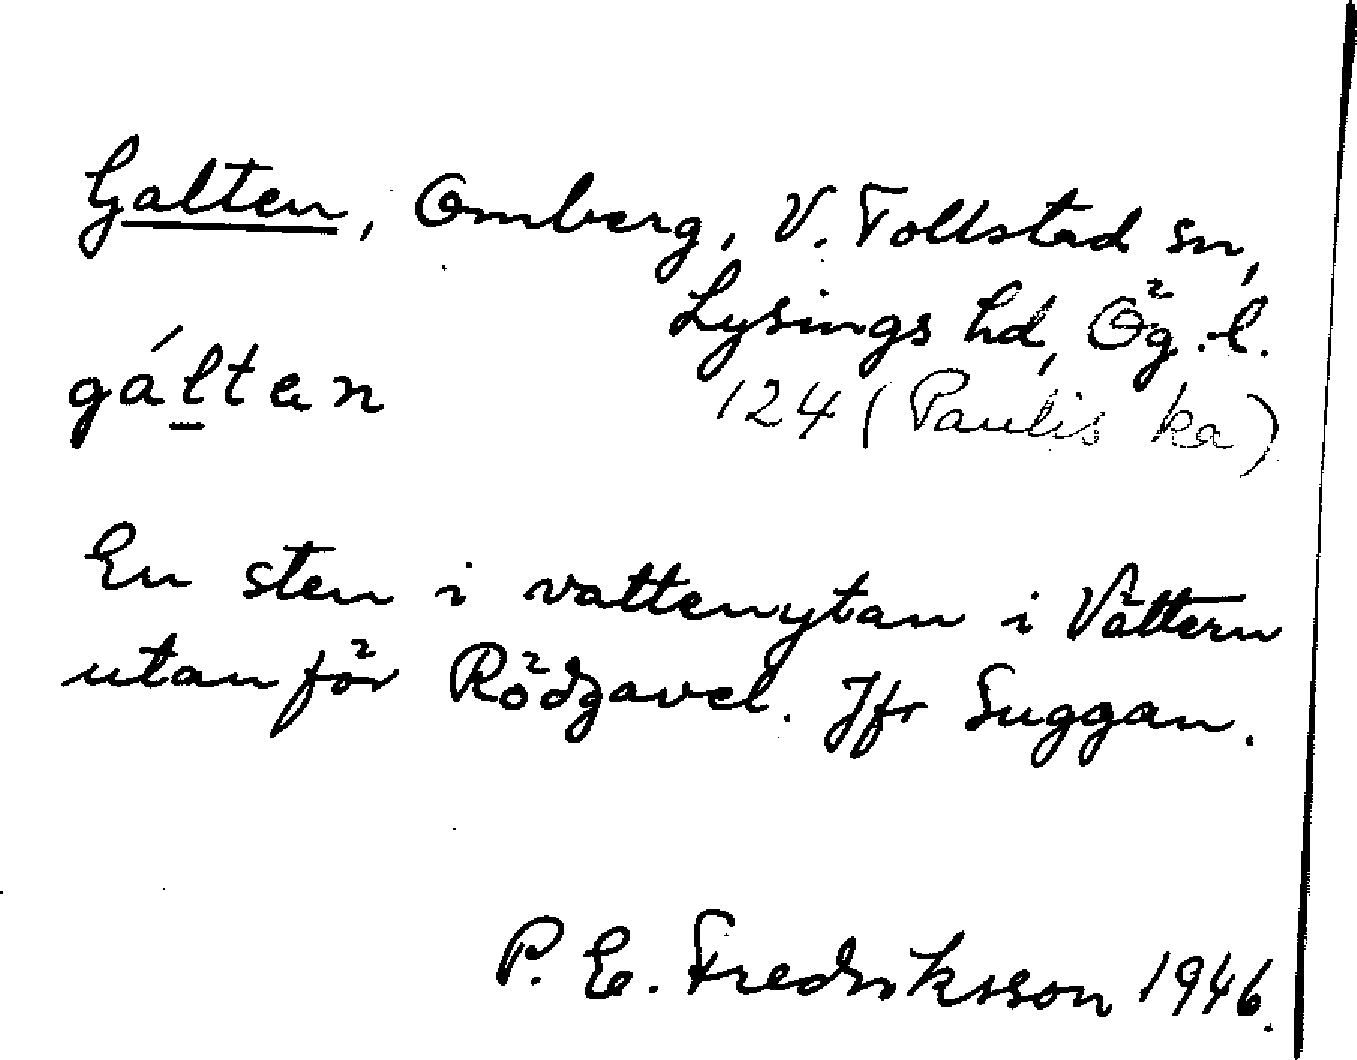 Galten, Omberg, V. Tollstad sn,
Lysings hd, Ög. l.
gáltan
124 (Paulis ka)
En sten i vattenytan i Vättern
utanför Rödgavel. Jfr Suggan.
P. E. Fredriksson 1946.